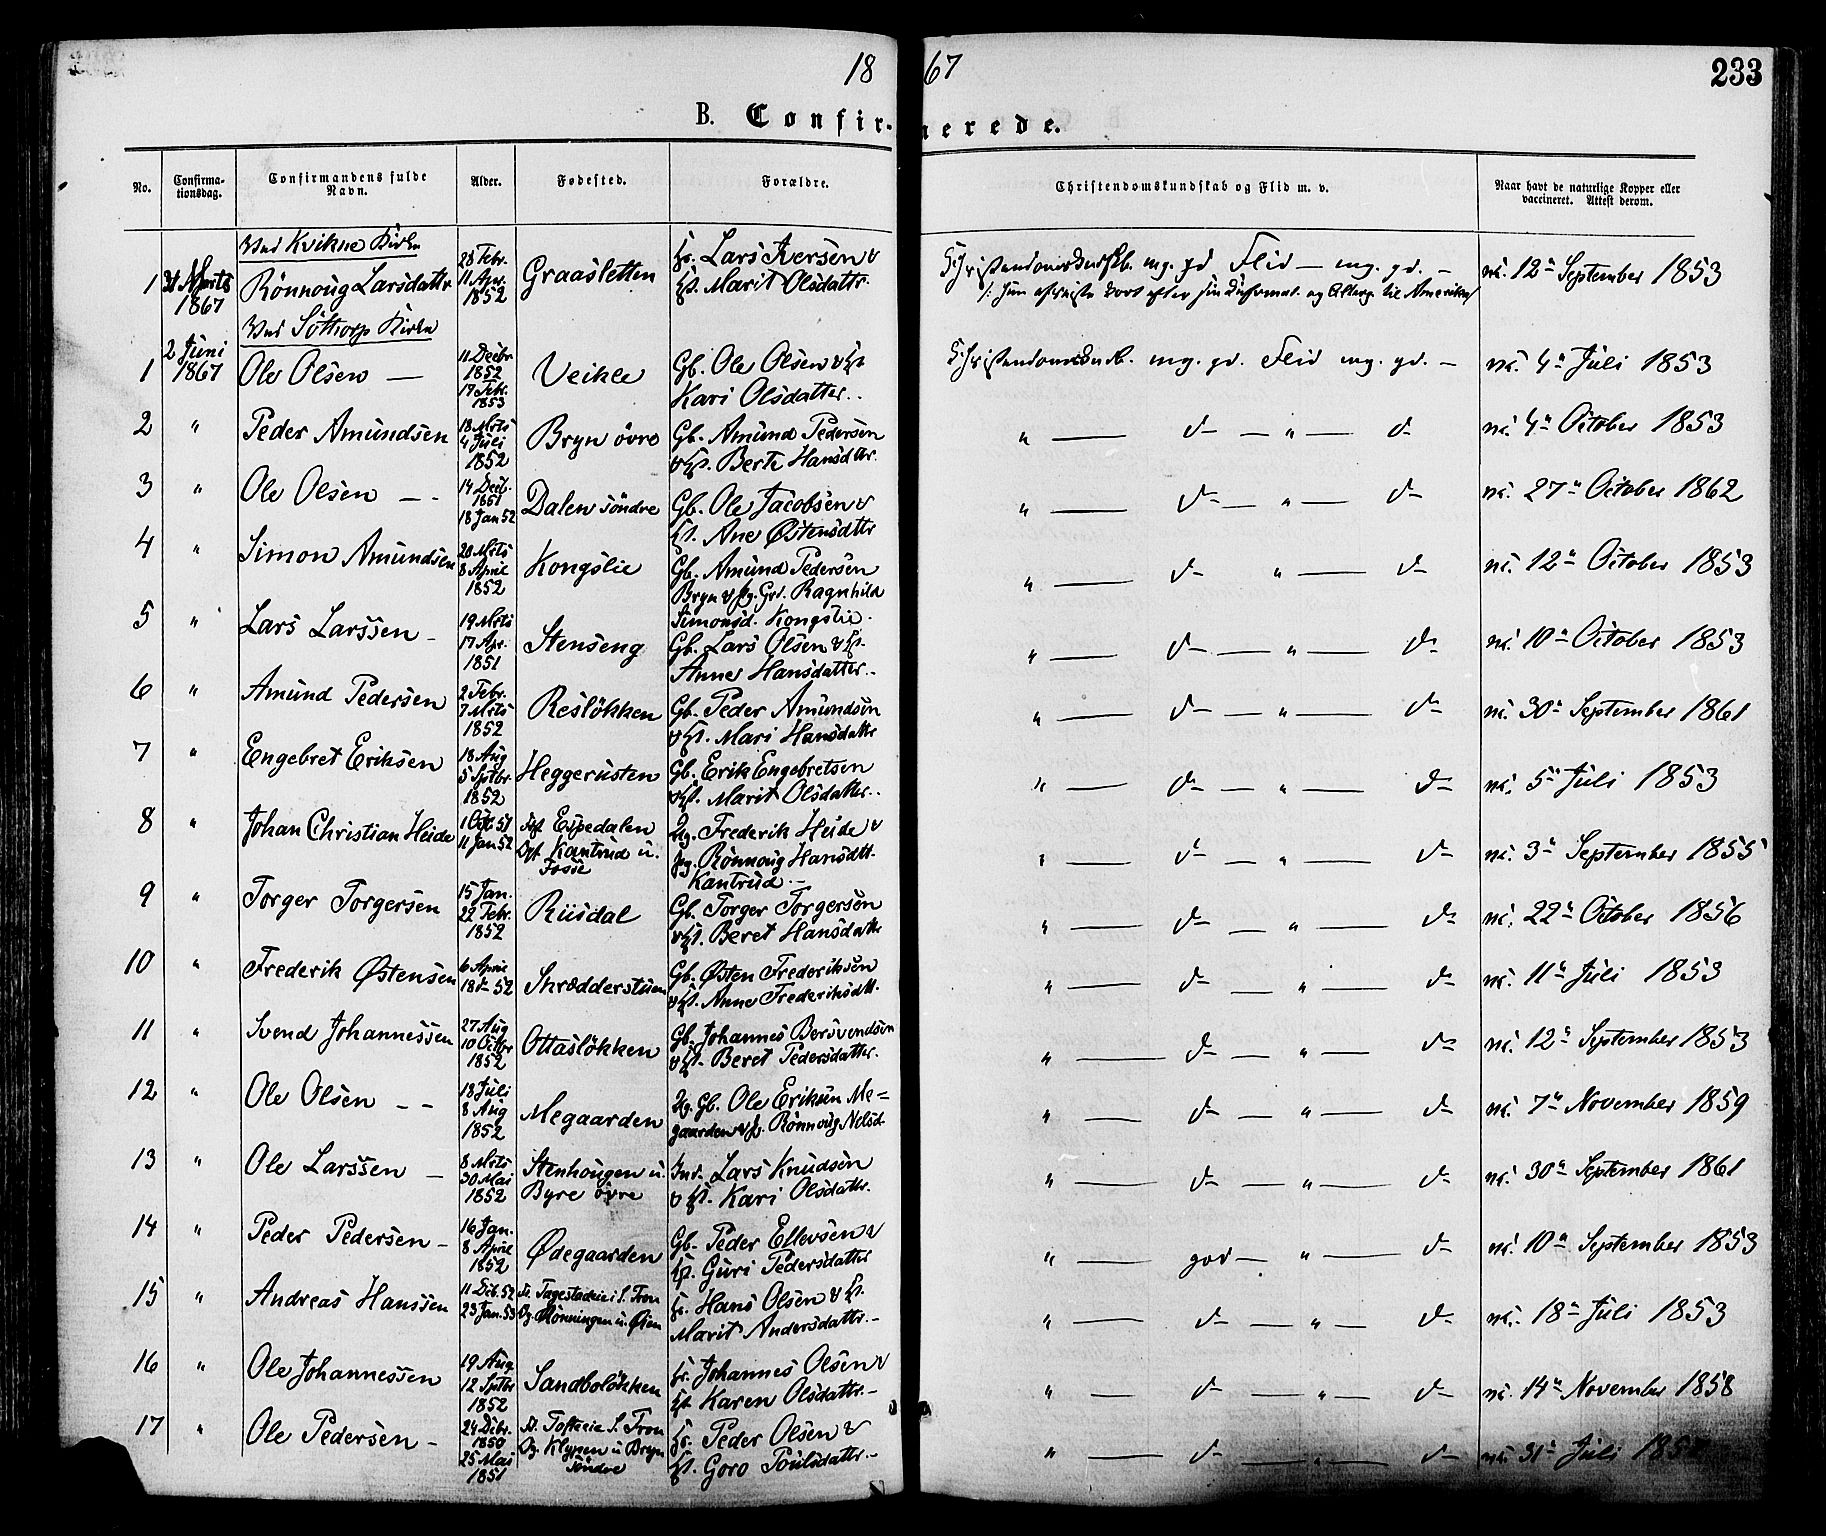 18 67
233
B. Confirmerede.
No. Confirmationsdag. Confirmandens fulde Navn. Alder. Fødested. Forældre. Christendomskundskab og Flid m. v. Naar havt de naturlige Kopper eller vaccineret. Attest derom.
Ved Kvikne Kirke
1 31 Marts 1867 Rönnoug Larsdattr 28 Febr. 11 Apr. 1852 Graasletten Lars Iversen & Marit Olsdattr. Christendomskundskb. mg. gd Flid — mg. gd. — v. 12te September 1853
Ved Södtorp Kirke
1 2 Juni 1867 Ole Olsen — 11 Decbr 1852 17 Febr. 1853 Veikle Gb. Ole Olsen & Kari Olsdatter. Christendomskundsk. mg. gd. Flid mg. gd. — v. 4de Juli 1853
2 " Peder Amundsen 18 Mrts 4 Juli 1852 Bryn övre Gb. Amund Pedersen & Berte Hansdttr. " — d — " — d v. 4de October 1853
3 " Ole Olsen — 14 Decb. 1851 18 Jan 52 Dalen söndre Gb. Ole Jacobsen & Ane Østensdttr " — d — " — d v. 27de October 1862
4 " Simon Amundsen 20 Mrts 8 April 1852 Kongslie Gb. Amund Pedersen Bryn & pg. Grd. Ragnhild Simonsd. Kongslie. " — d " — d v. 12te October 1853
5 " Lars Larssen — 19 Mrts 17 Apr. 1851 Stenseng Gb. Lars Olsen & Anne Hansdatter. " — d — " — d v. 10de October 1853
6 " Amund Pedersen 2 Febr. 7 Mrts 1852 Reslökken Gb. Peder Amundsen & Mari Hansdattr " — d — " — d v. 30te September 1861
7 " Engebret Eriksen 18 Aug 5 Sptbr. 1852 Heggerusten Gb. Erik Engebretsen & Marit Olsdatter. " — d — " — d v. 5te Juli 1853
8 " Johan Christian Heide 1 Oct 51 11 Jan 52 Espedalen Kantrud u. Fosse Frederik Heide & Rönnoug Hansdtt. Kantrud — " — d — " — d v. 3de September 1855
9 " Torger Torgersen 15 Jan. 22 Febr. 1852 Rusdal Gb. Torger Torgersen & Beret Hansdattr " — d — " — d v. 22de October 1856
10 " Frederik Østensen 6 April 18de 52 Skrædderstuen Gb. Østen Frederiksen & Anne Frederiksdtt. " — d — " — d v. 11te Juli 1853
11 " Svend Johannessen 27 Aug 10 Octbr 1852 Ottaslökken Gb. Johannes Bersvendsen & Beret Pedersdatter. " — d — " — d v. 12te September 1853
12 " Ole Olsen — — 18 Juli 8 Aug 1852 Megaarden Gb. Ole Eriksen Megaarden & Rönnoug Nilsd. " — d — " — d v. 7de November 1859
13 " Ole Larssen — 8 Mrts 30 Mai 1852 Stenhougen u. Byre övre Ind. Lars Knudsen & Kari Olsdattr. " — d — " — d v. 30te September 1861
14 " Peder Pedersen — 16 Jan. 8 April 1852 Ødegaarden Gb. Peder Ellevsen & Guri Pedersdatter " — god — " — d v. 10de September 1853
15 " Andreas Hanssen 11 Dcb. 52 23 Jan. 53 i S. Fron Rönningen u. Öien Hans Olsen & Marit Andersdattr. — " — d — " — d v. 18de Juli 1853
16 " Ole Johannessen 19 Aug. 12 Sptbr 1852 Sandbolökken Johannes Olsen & Karen Olsdattr. — " — d — " — d v. 14de November 1858
17 " Ole Pedersen — 24 Dcbr. 1850 25 Mai 1851 S. Fron Klypen u Bryn söndre Peder Olsen & Goro Poulsdattr. — " — d — " — d v. 31te Juli